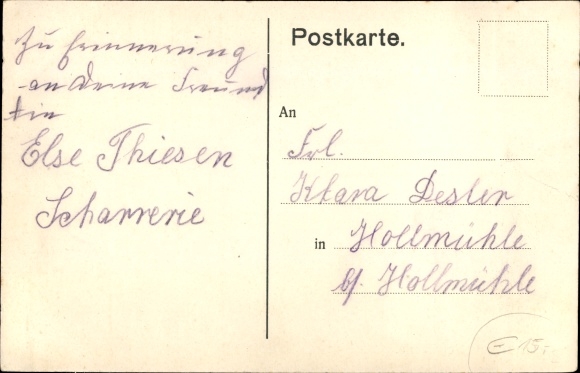 Zu Erinnerung
an deine Freund
tin
Else Thiesen
Scharrerie
Postkarte.
An
Frl.
Klara Desler
in Hollmühle
b/. Hollmühle
€ 15,-